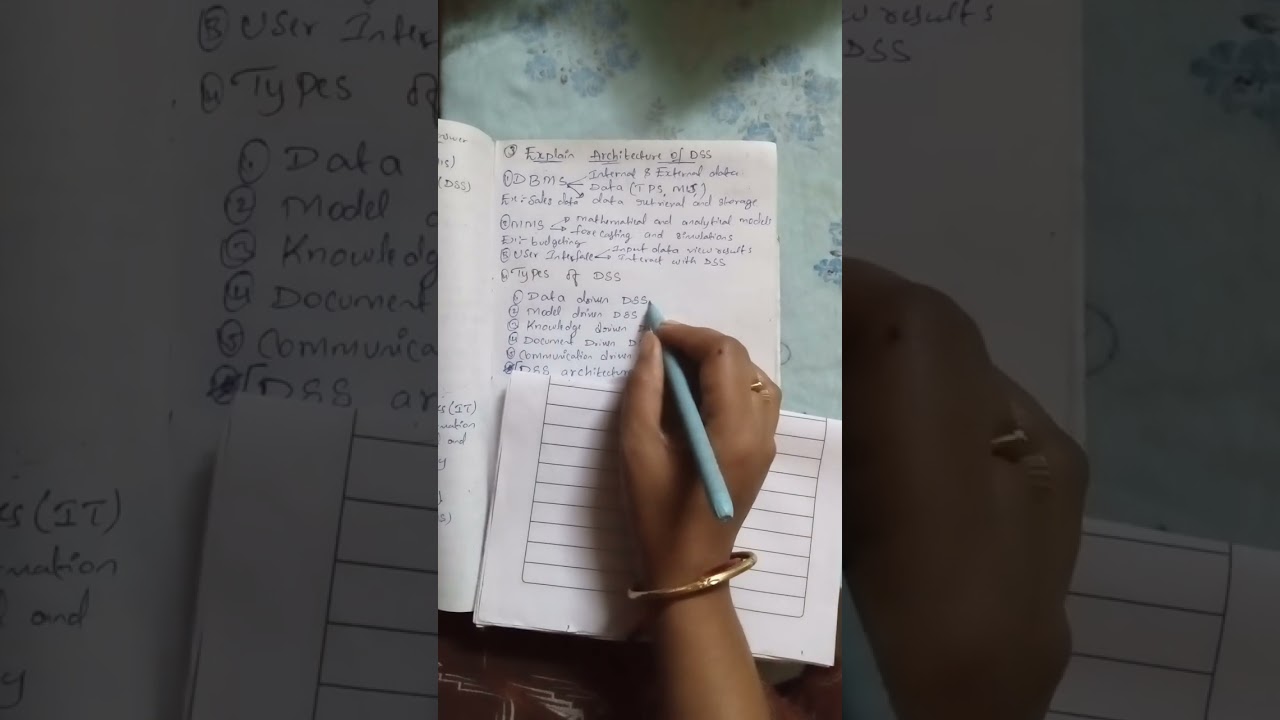 ③ Explain Architecture of DSS
① DBMS Internal & External data
Data (TPS, MIS)
Ex:- Sales data data retrieval and storage
② MMS mathematical and analytical models
forecasting and simulations
Ex:- budgeting
③ User Interface Input data view results
Interact with DSS
④ Types of DSS
① Data driven DSS
② Model driven DSS
③ Knowledge driven
④ Document Driven
⑤ Communication driven
DSS architecture
answer
(DSS)
(IT)
and